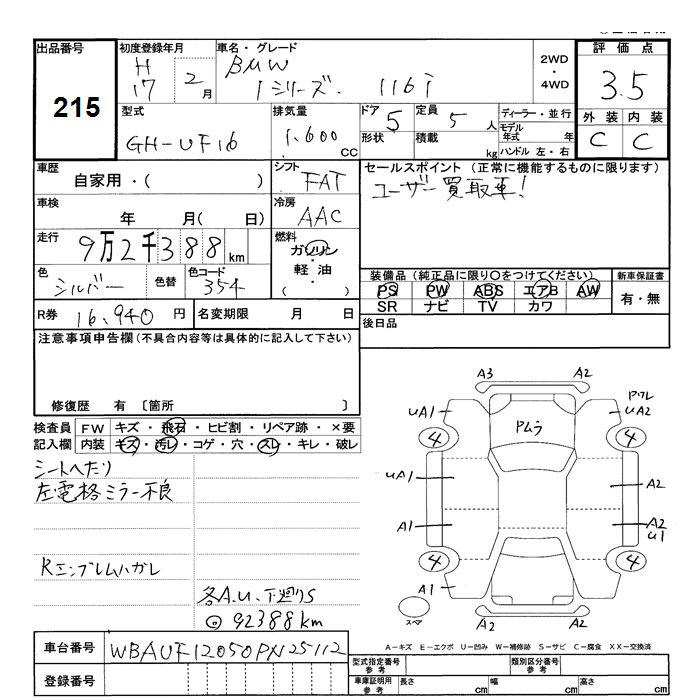 出品番号
215
初度登録年月
H17 2月
車名・グレード
BMW
1シリーズ. 116i
2WD
・
4WD
評価点
3.5
外装 内装
C C
型式
GH-UF16
排気量
1.600 cc
ドア 5
形状
定員 5 人
積載 kg
ディーラー・並行
モデル年式 年
ハンドル 左・右
車歴
自家用・( )
シフト
FAT
セールスポイント (正常に機能するものに限ります)
ユーザー買取車!
車検
年 月( 日)
冷房
AAC
走行
9万2千388km
燃料
ガソリン
・
軽油
( )
色
シルバー
色替
色コード
354
装備品 (純正品に限り○をつけてください)
PS PW ABS エアB AW
SR ナビ TV カワ
新車保証書
有・無
R券 16,940円
名変期限 月 日
後日品
注意事項申告欄 (不具合内容等は具体的に記入して下さい)
修復歴 有 〔箇所 〕
検査員
記入欄
FW キズ・飛石・ヒビ割・リペア跡・×要
内装 キズ・汚レ・コゲ・穴・スレ・キレ・破レ
シートへたり
左電格ミラー不良
Rエンブレムハガレ
各A.U.下廻りS
◎92388km
A3 A2
UA1 UA2
4 4
Pムラ
UA1 A2
A1 A2
U1
4 4
A1
スペア
A2 A2
A－キズ E－エクボ U－凹み W－補修跡 S－サビ C－腐食 XX－交換済
車台番号
WBAUF12050PN25112
登録番号
型式指定番号
参考
類別区分番号
参考
車庫証明用
参考
長さ cm
幅 cm
高さ cm